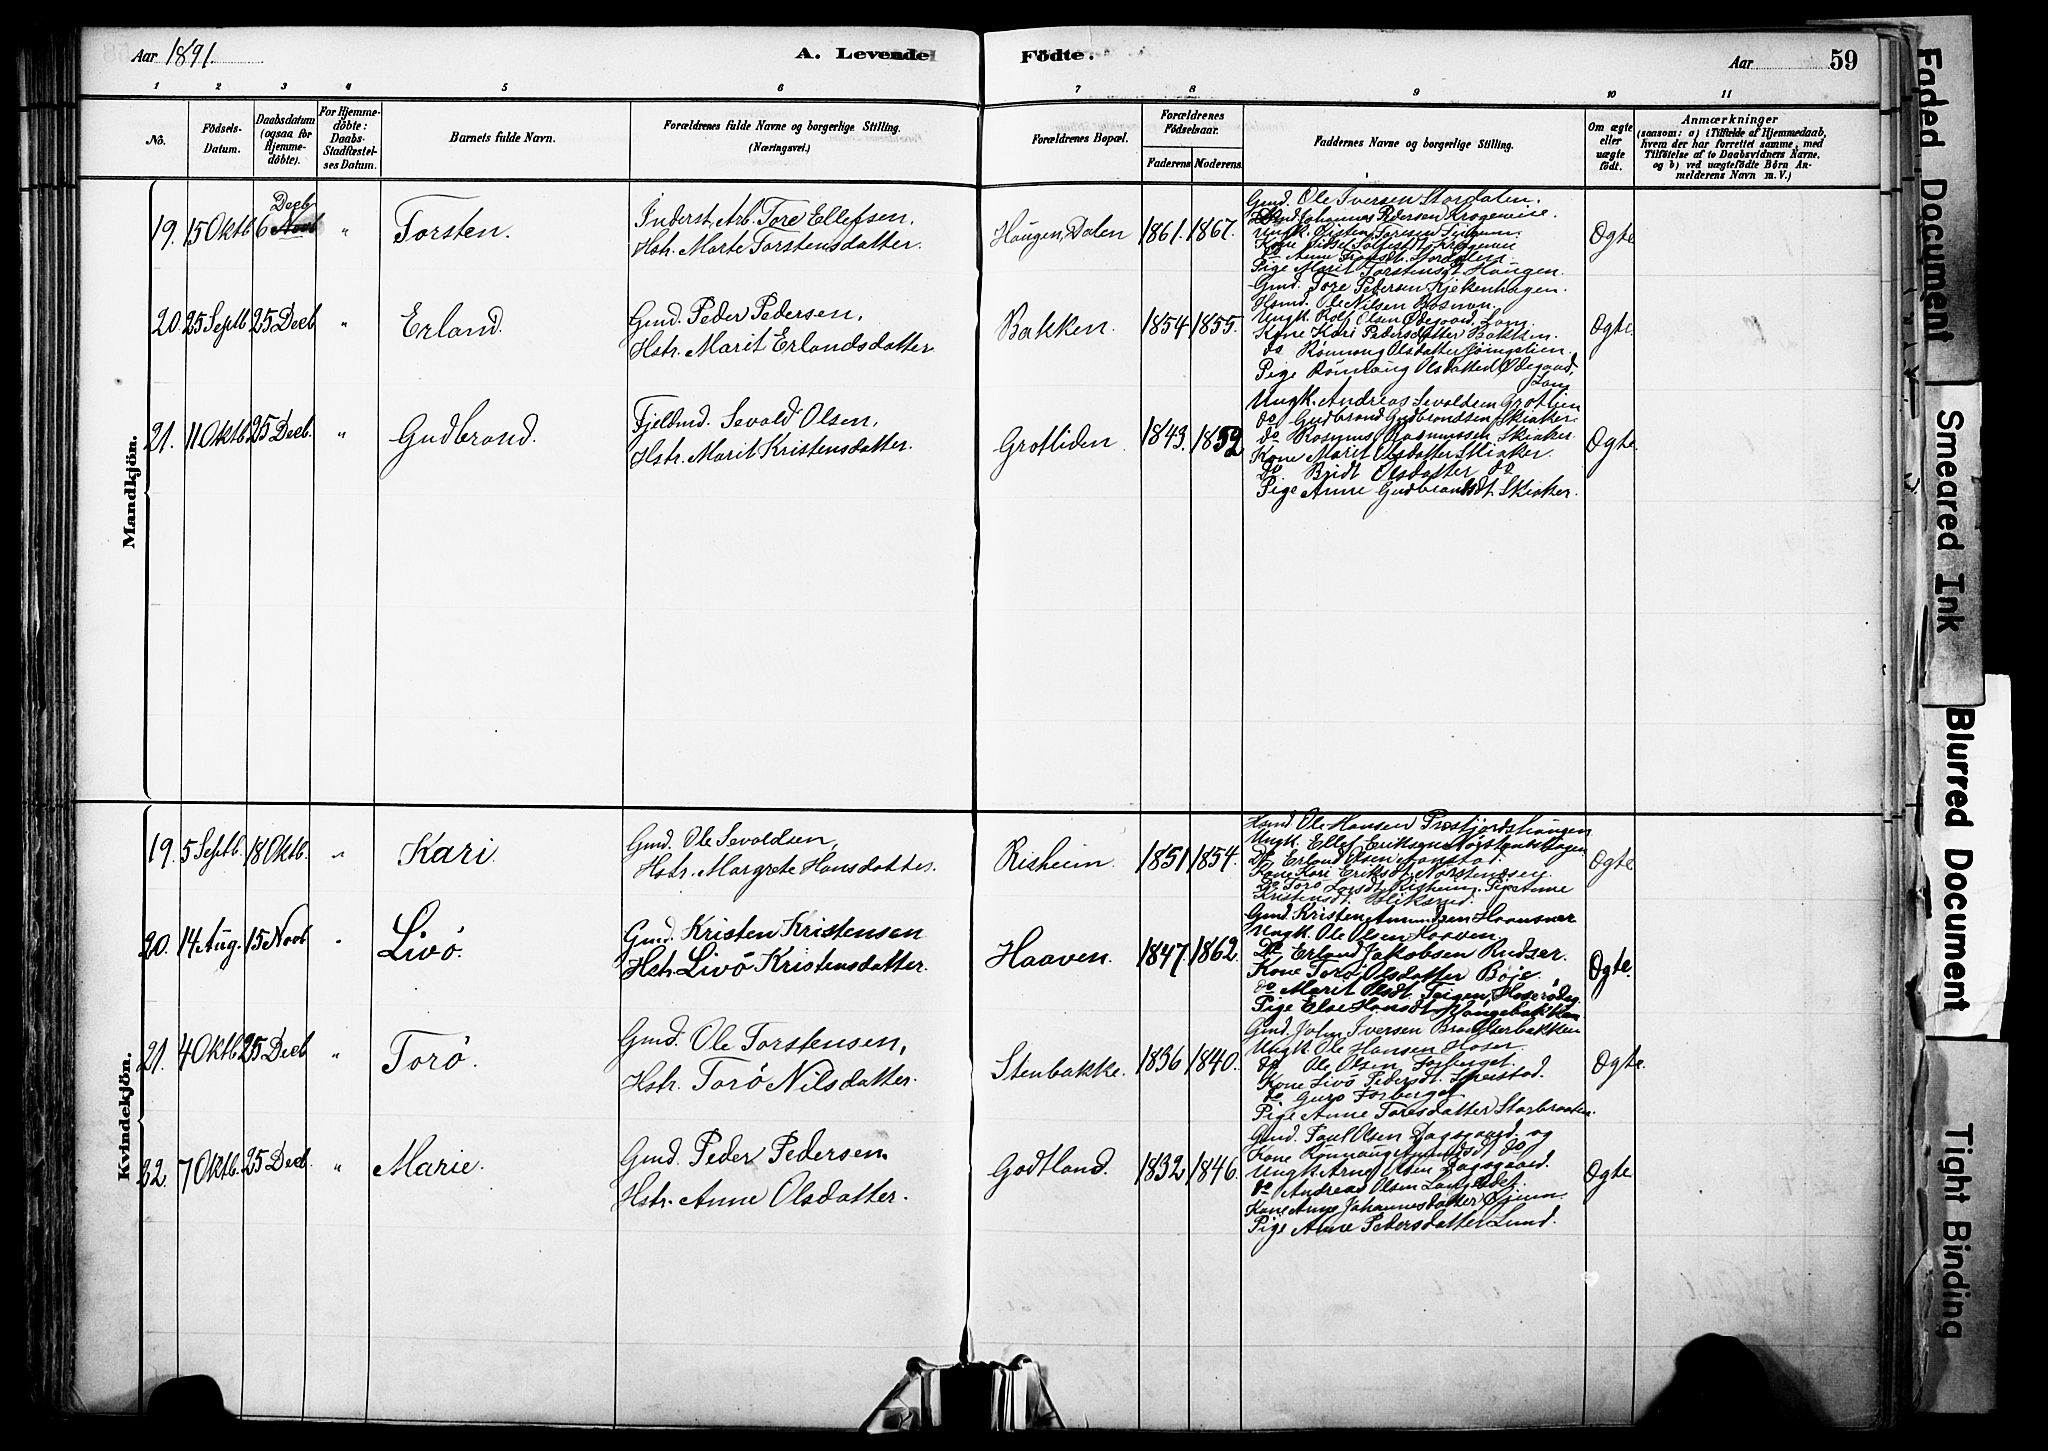 Aar 1891.
A. Levende Födte.
Aar 59
1 2 3 4 5 6 7 8 9 10 11
No.
Födsels-Datum.
Daabsdatum (ogsaa for Hjemme-döbte).
For Hjemme-döbte: Daabs-Stadfæstel-ses Datum.
Barnets fulde Navn.
Forældrenes fulde Navne og borgerlige Stilling.
(Næringsvei.)
Forældrenes Bopæl.
Forældrenes Födselsaar.
Faderens Moderens
Faddernes Navne og borgerlige Stilling.
Om ægte eller uægte födt.
Anmærkninger
(saasom: a) i Tilfælde af Hjemmedaab,
hvem der har forrettet samme, med
Tilföielse af to Daabsvidners Navne,
og b) ved uægtefödte Börn An-
melderens Navn m. V.)
Mandkjön.
19. 15 Oktb 6 Decb Novb " Torsten.
Inderst, Arb. Tore Ellefsen,
Hstr. Marte Torstensdatter.
Haugen, Dalen 1861. 1867.
Gmd. Ole Iversen Stordalen.
Johannes Pedersen Krogevie.
Pige Marit Torstensdt. Haugen.
Ogte
20. 25 Septb 25 Decb " Erland.
Gmd. Peder Pedersen,
Hstr. Marit Erlandsdatter.
Bakken. 1854 1855.
Gmd. Tore Pedersen Kjekenhagen.
Hsmd. Ole Nilsen
Ungk. Rolf Olsen Ødegaard, Lom
Kone Kari Pedersdatter Bakken.
do Rønnaug Olsdatter
Pige Rønnaug Olsdatter Ødegaard,
Lom
Ogte.
21. 11 Oktb 25 Decb. " Gudbrand.
Fjeldmd. Sevald Olsen,
Hstr. Marit Kristensdatter.
Grotliden 1843. 1852
Ungk. Andreas Sevaldsen Grotlien
do Gudbrand Gudbrandsen Skiaker.
do Rasmus Rasmussen Skiaker.
Kone Marit Olsdatter Skiaker.
Do Bridt Olsdatter do
Pige Anne Gudbrandsdt. Skiaker.
Ogte.
Kvindekjön.
19. 5 Septb. 18 Oktb. " Kari.
Gmd. Ole Sevaldsen,
Hstr. Margrete Hansdatter.
Risheim 1851 1854.
Hsmd. Ole Hansen
Ungk. Ellef Eriksen
Do Erland Olsen Aanstad.
Kone Kari Eriksdt.
Do Torø Risheim. Pige Anne
Kristensdt.
Ogte
20. 14 Aug. 15 Novb " Livö.
Gmd. Kristen Kristensen
Hstr. Livö Kristensdatter.
Haaven. 1847. 1862.
Gmd. Kristen Amundsen
Ungk. Ole Olsen Haaven.
Do Erland Jakobsen Rudser.
Kone Torö Olsdatter Böje.
do Marit Olsdt. Teigen,
Pige Else Hansdt.
Ogte.
21. 4 Oktb 25 Decb " Torö.
Gmd. Ole Torstensen,
Hstr. Torö Nilsdatter.
Stenbakke. 1836 1840.
Gmd. John Iversen
Ungk. Ole Hansen Hoser.
do Ole Olsen Forberget.
Kone Livö Pedersdt.
do Guro Forberget
Pige Anne Toresdatter Storbraaten.
Ogte.
22. 7 Oktb. 25 Decb. " Marie.
Gmd. Peder Pedersen.
Hstr. Anne Olsdatter.
Godtland. 1832 1846.
Gmd. Paul Olsen Dagsgaard. og
Kone Rønnaug Amundsdt do
Ungk. Arne Olsen Dagsgaard.
do Andreas Olsen
Kone Anne Johannesdatter
Pige Anne Pedersdatter Lund.
Ogte.
Faded Document
Smeared Ink
Blurred Document
Tight Binding